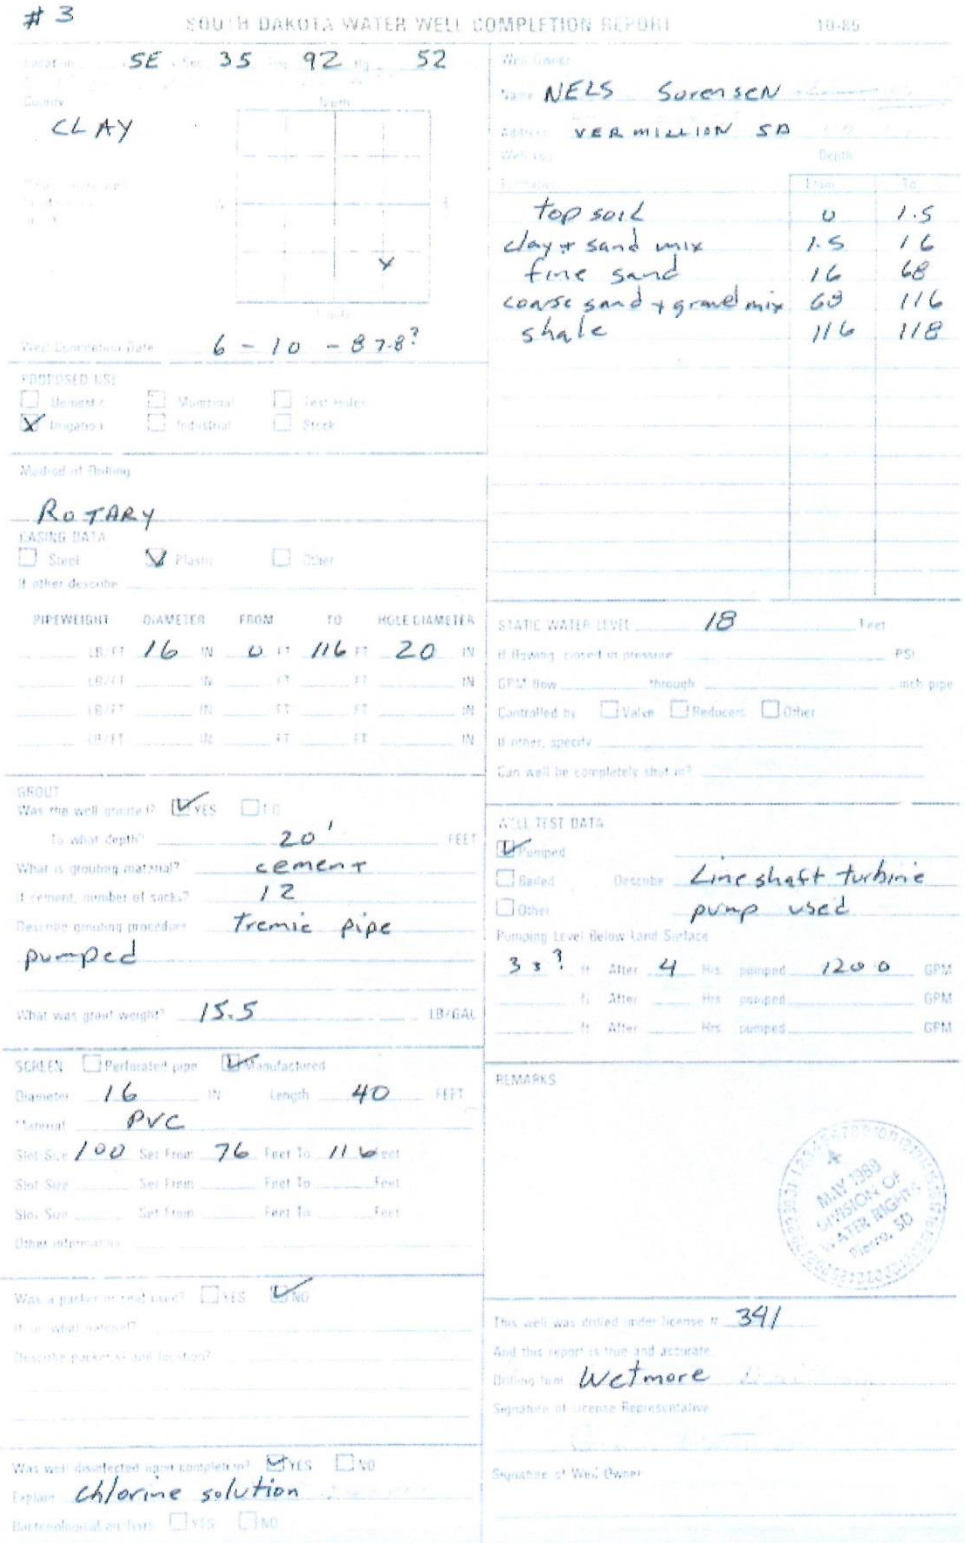 # 3
SOUTH DAKOTA WATER WELL COMPLETION REPORT 10-85
Location SE Sec 35 Twp 92 Rg 52
County North
CLAY
Well Completion Date 6 - 10 - 87-8?
PROPOSED USE
Domestic Municipal Test Holes
X Irrigation Industrial Stock
Method of Drilling
ROTARY
CASING DATA
Steel Plastic Other
If other describe
PIPEWEIGHT DIAMETER FROM TO HOLE DIAMETER
LB/FT 16 IN 0 FT 116 FT 20 IN
LB/FT IN FT FT IN
LB/FT IN FT FT IN
LB/FT IN FT FT IN
GROUT
Was the well grouted? YES NO
To what depth? 20' FEET
What is grouting material? cement
If cement, number of sacks? 12
Describe grouting procedure Tremie pipe
pumped
What was grout weight? 15.5 LB/GAL
SCREEN Perforated pipe Manufactured
Diameter 16 IN Length 40 FEET
Material PVC
Slot Size 100 Set From 76 Feet To 116 Feet
Slot Size Set From Feet To Feet
Slot Size Set From Feet To Feet
Other information
Was a packer or seal used? YES NO
If so what material?
Describe packer(s) and location?
Was well disinfected upon completion? YES NO
Explain Chlorine solution
Bacteriological analysis YES NO
Well Owner
Name NELS Sorensen
Address VERMILLION SD
Well Log Depth
Formation From To
top soil 0 1.5
clay + sand mix 1.5 16
fine sand 16 68
coarse sand + gravel mix 68 116
shale 116 118
STATIC WATER LEVEL 18 Feet
If flowing, closed in pressure PSI
GPM flow through inch pipe
Controlled by Valve Reducers Other
If other, specify
Can well be completely shut in?
WELL TEST DATA
Pumped
Bailed Describe Lineshaft turbine
Other pump used
Pumping Level Below Land Surface
33? ft After 4 Hrs pumped 1200 GPM
ft After Hrs pumped GPM
ft After Hrs pumped GPM
REMARKS
MAY 1988
DIVISION OF
WATER RIGHTS
Pierre, SD
This well was drilled under license # 341
And this report is true and accurate
Drilling firm Wetmore
Signature of License Representative
Signature of Well Owner